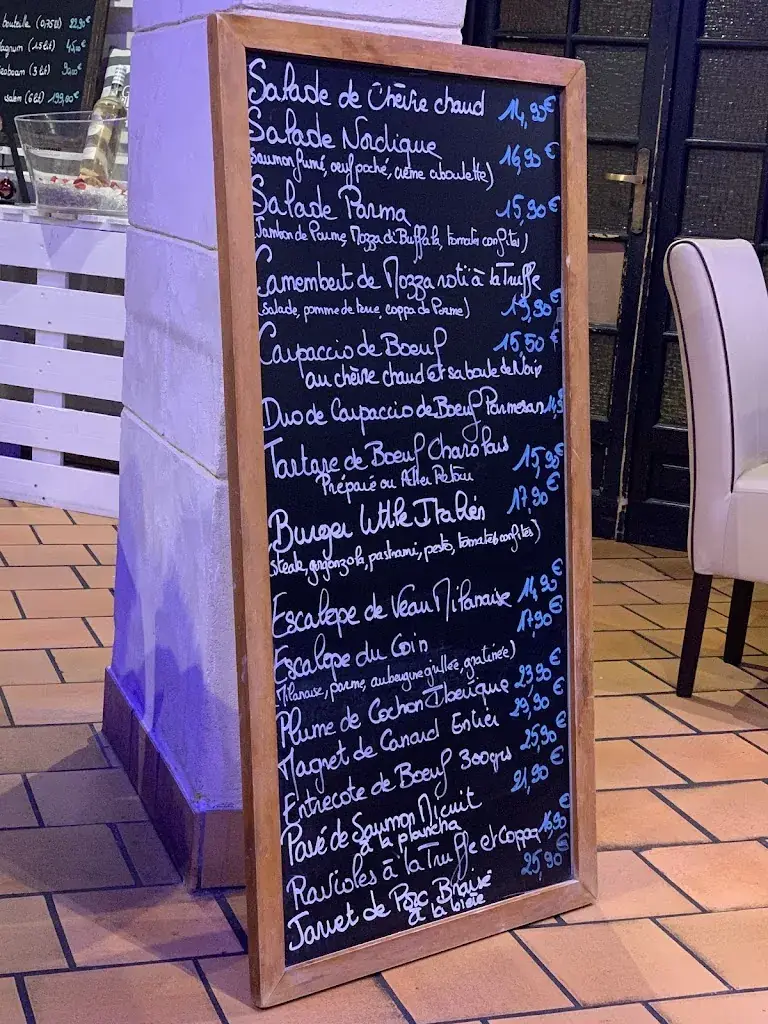 bouteille (0,75cl) 22,90€
Magnum (1.5 lit) 45,00€
(3 lit) 90,00€
(6 lit) 199,00€
Salade de Chèvre chaud 14,90€
Salade Nordique 16,90€
(Saumon fumé, oeuf poché, crème ciboulette)
Salade Parma 15,90€
(Jambon de Parme, Mozza di Buffala, tomates confites)
Camembert de Mozza roti à la Truffe
(Salade, pomme de terre, coppa de Parme) 19,90€
Carpaccio de Boeuf 15,50€
au chèvre chaud et sa boule de Noix
Duo de Carpaccio de Boeuf Parmesan 14,9
Tartare de Boeuf Charolais 15,90€
Préparé ou Aller Retour
Burger Little Italien 17,90€
(steak, gorgonzola, pastrami, pesto, tomates confites)
Escalope de Veau Milanaise 14,90€
Escalope du Coin 17,90€
(Milanaise, parme, aubergine grillée, gratinée)
Plume de Cochon Iberique 23,90€
Magret de Canard Entier 29,90€
Entrecote de Boeuf 300grs 25,90€
Pavé de Saumon Micuit 21,90€
à la plancha
Ravioles à la Truffe et Coppa 16,90€
Jarret de Porc Braisé 25,90€
à la bière